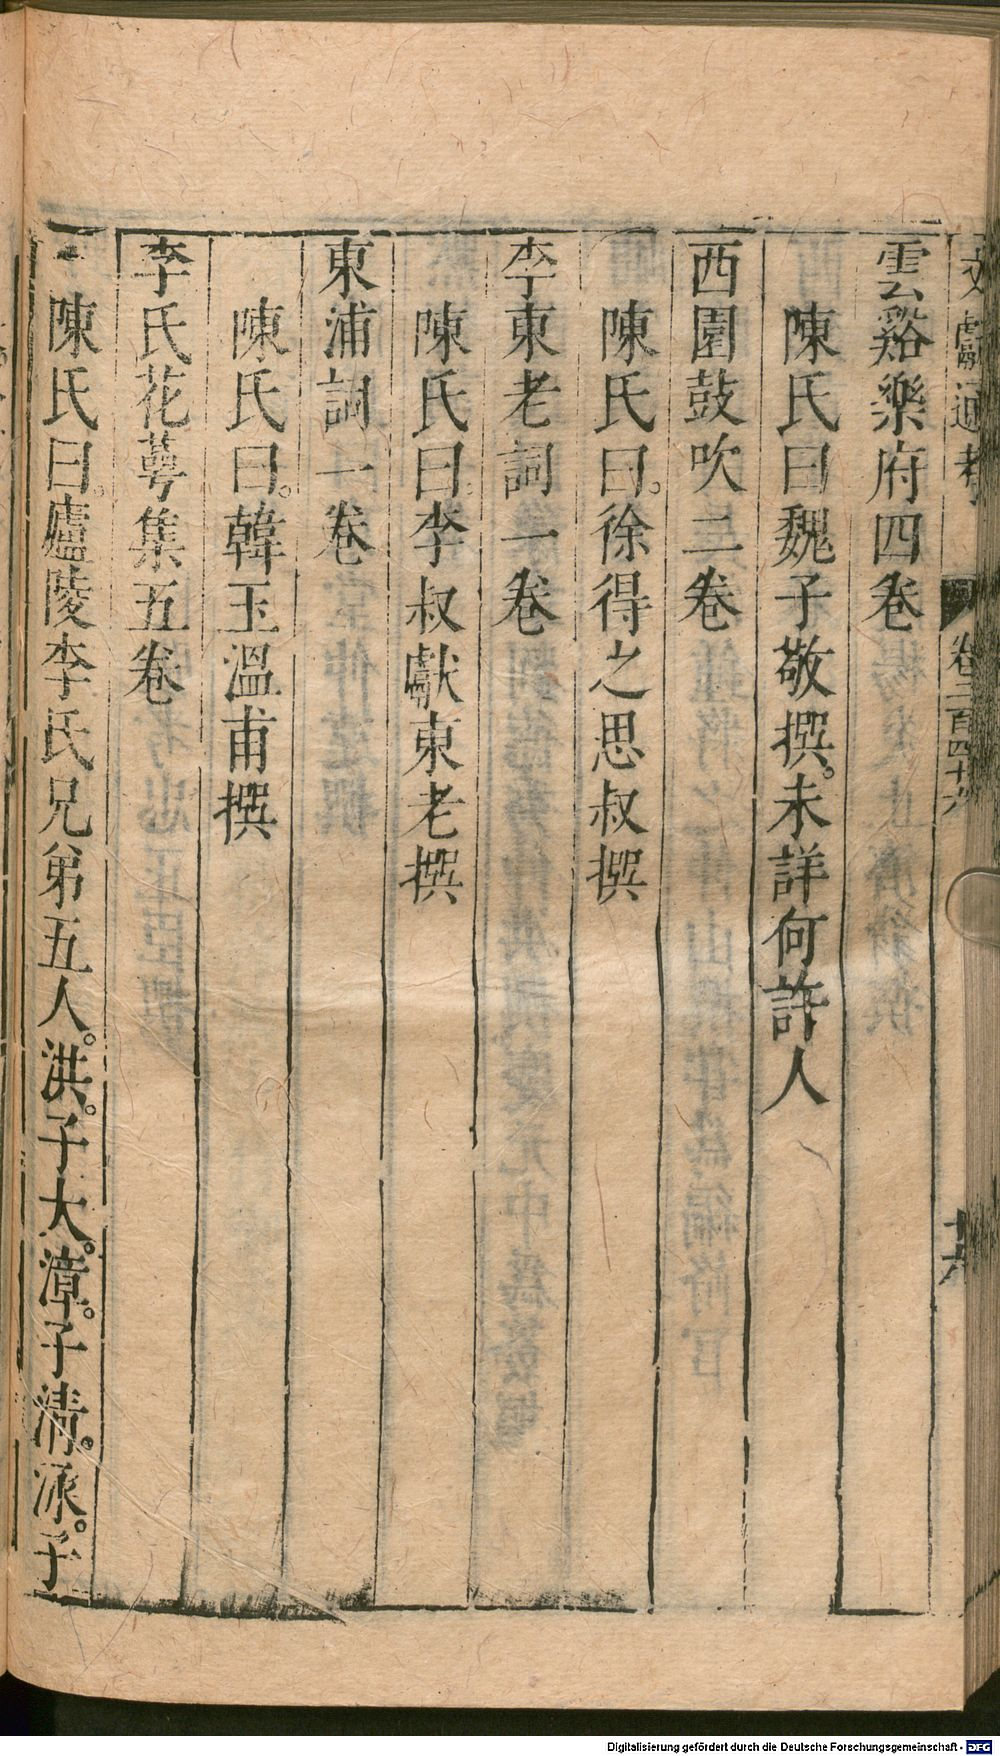 文獻通考 卷二百四十六 十六
雲谿樂府四卷
陳氏曰魏子敬撰。未詳何許人
西園鼓吹二卷
陳氏曰。徐得之思叔撰
李東老詞一卷
陳氏曰。李叔獻東老撰
東浦詞一卷
陳氏曰。韓玉溫甫撰
李氏花萼集五卷
陳氏曰。廬陵李氏兄弟五人。洪。子大。漳。子清。泳。子
Digitalisierung gefördert durch die Deutsche Forschungsgemeinschaft - DFG